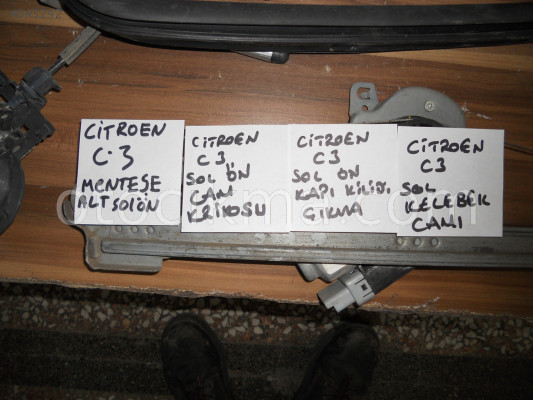 CİTROEN
C-3
MENTEŞE
ALT SOL ÖN
CİTROEN
C3
SOL ÖN
CAM
KRİKOSU
CİTROEN
C3
SOL ÖN
KAPI KİLİDİ
ÇIKMA
CİTROEN
C3
SOL
KELEBEK
CAMI